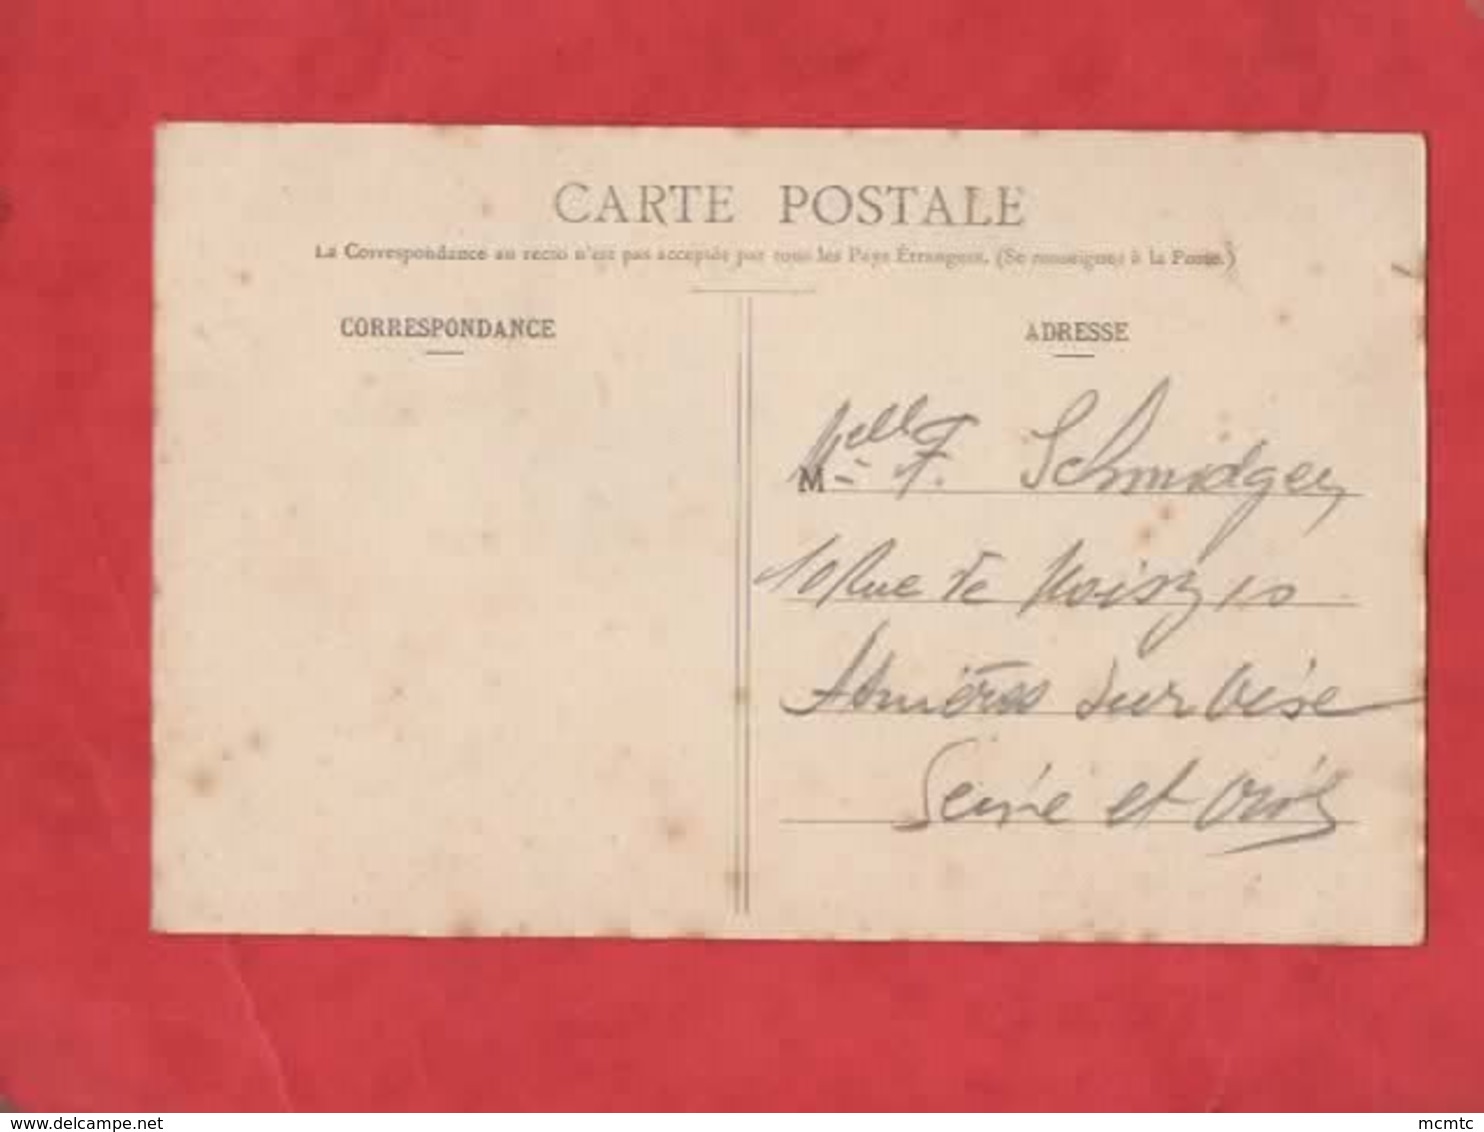 CARTE POSTALE
La Correspondance au recto n'est pas acceptée par tous les Pays Étrangers. (Se renseigner à la Poste.)
CORRESPONDANCE
ADRESSE
Melle F. Schmidger
10 Rue de
Asnières sur Oise
Seine et Oise
www.delcampe.net
mcmtc